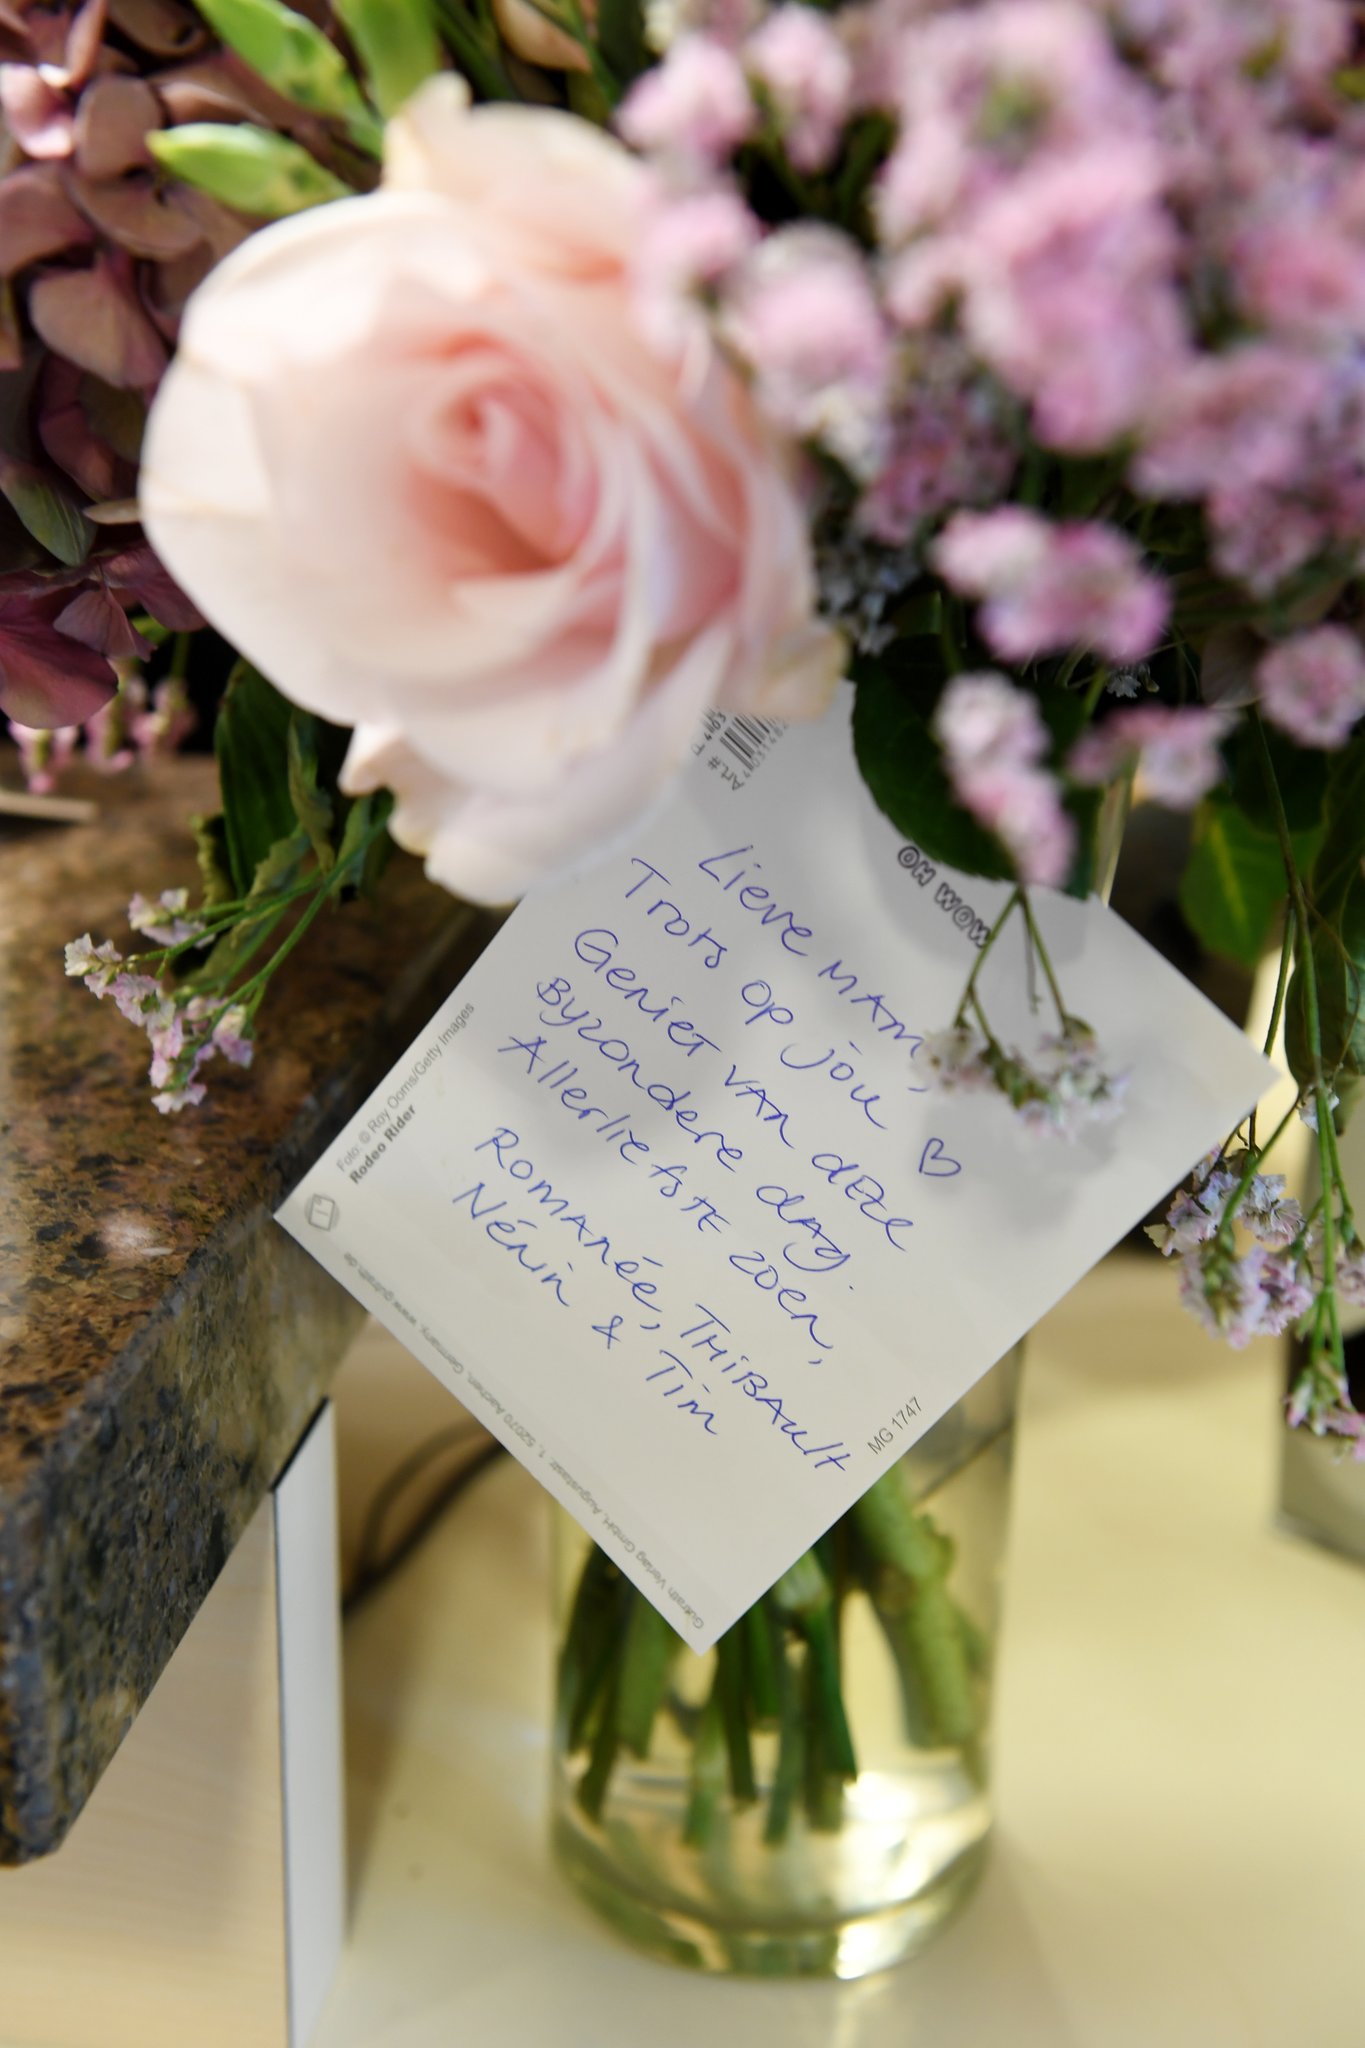 Art.#
OH WOW
Lieve mam,
Trots op jou ♡
Geniet van deze
Byzondere dag.
Allerliefste zoen,
Romanée, Thibault
Nénin & Tim
Foto: © Roy Ooms/Getty Images
Rodeo Rider
MG 1747
Gutrath Verlag GmbH, Augustastr. 1, 52070 Aachen, Germany, www.gutrath.de